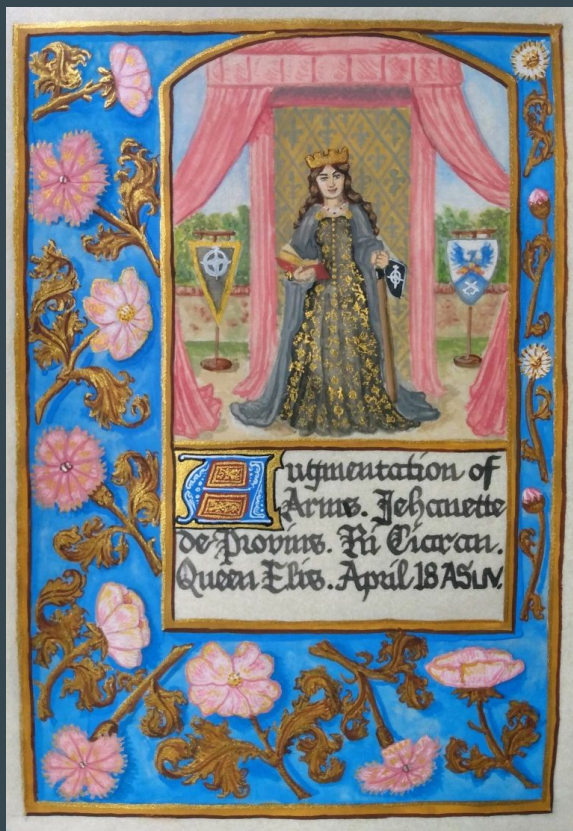 Augmentation of
Arms. Jehanette
de Provins. Ri Ciaran.
Queen Elis. April 18 AS LIV.